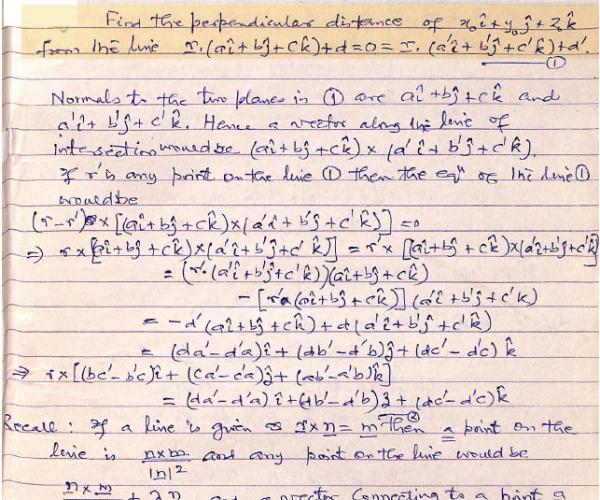 Find the perpendicular distance of x₀î + y₀ĵ + z₀k̂
from the line r.(aî+bĵ+ck̂)+d=0=r.(a'î+b'ĵ+c'k̂)+d'.
①
Normals to the two planes in ① are aî+bĵ+ck̂ and
a'î+b'ĵ+c'k̂. Hence a vector along the line of
intersection would be (aî+bĵ+ck̂)×(a'î+b'ĵ+c'k̂).
If r' is any point on the line ① then the eqⁿ of the line ①
would be
(r-r')×[(aî+bĵ+ck̂)×(a'î+b'ĵ+c'k̂)]=0
⇒ r×[(aî+bĵ+ck̂)×(a'î+b'ĵ+c'k̂)] = r'×[(aî+bĵ+ck̂)×(a'î+b'ĵ+c'k̂)]
= (r'.(a'î+b'ĵ+c'k̂))(aî+bĵ+ck̂)
-[r'.(aî+bĵ+ck̂)](a'î+b'ĵ+c'k)
= -d'(aî+bĵ+ck̂)+d(a'î+b'ĵ+c'k̂)
= (da'-d'a)î+(db'-d'b)ĵ+(dc'-d'c)k̂
⇒ r×[(bc'-b'c)î+(ca'-c'a)ĵ+(ab'-a'b)k̂]
= (da'-d'a)î+(db'-d'b)ĵ+(dc'-d'c)k̂
②
Recall: If a line is given as r×n=m then a point on the
line is n×m/|n|² and any point on the line would be
n×m + λn and a vector connecting to a point a